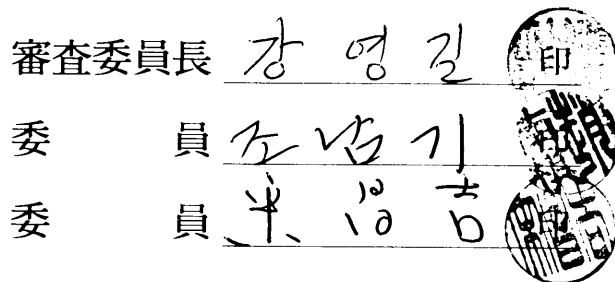 審査委員長 강영길 印
委員 조남기
委員 吉 印